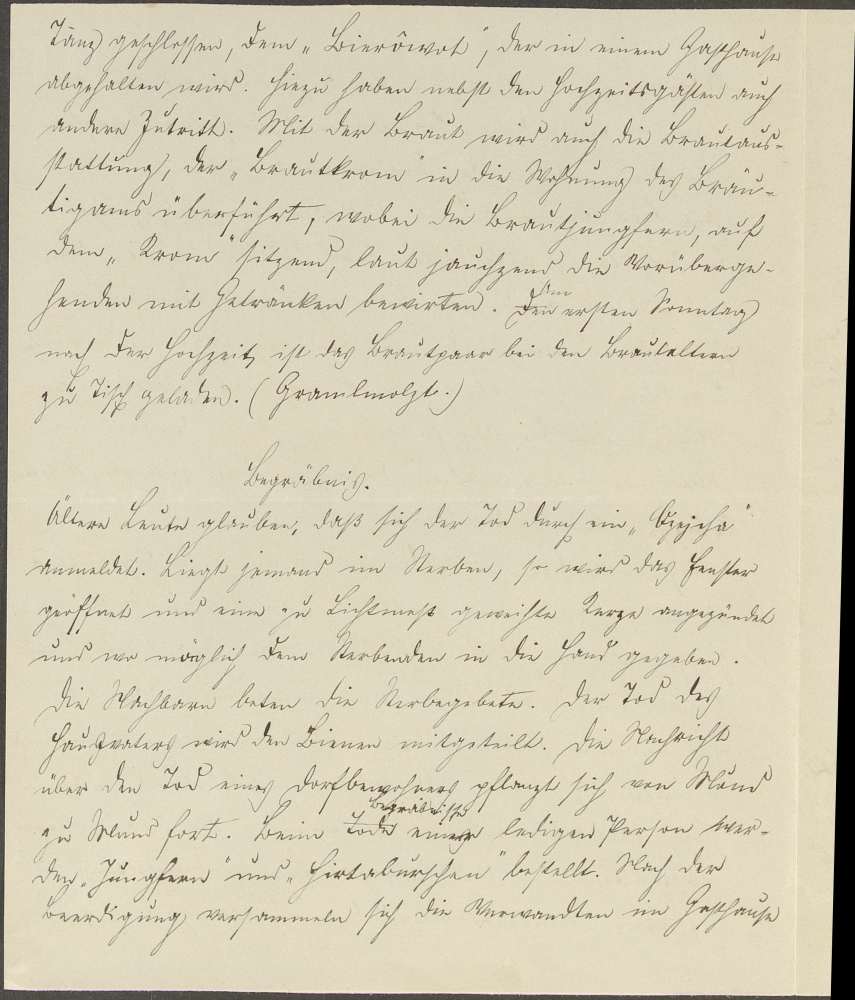 Tanz geschlossen, dem „Bierôwot“, der in einem Gasthause
abgehalten wird. Hiezu haben nebst den Hochzeitsgästen auch
andere Zutritt. Mit der Braut wird auch die Brautaus-
stattung, der „Brautkrom“ in die Wohnung des Bräu-
tigams überführt, wobei die Brautjungfern, auf
dem „Krom“ sitzend, laut jauchzend die Vorüberge-
henden mit Getränken bewirten. Am ersten Sonntag
nach der Hochzeit ist das Brautpaar bei den Brauteltern
zu Tisch geladen. (Gramlmolzt.)
Begräbnis.
Ältere Leute glauben, daß sich der Tod durch ein
anmeldet. Liegt jemand im Sterben, so wird das Fenster
geöffnet und eine zu Lichtmeß geweihte Kerze angezündet
und wo möglich dem Sterbenden in die Hand gegeben.
Die Nachbarn beten die Sterbegebete. Der Tod des
Hausvaters wird den Bienen mitgeteilt. Die Nachricht
über den Tod eines Dorfbewohners pflanzt sich von Mund
zu Mund fort. Beim Begräbnisse einer ledigen Person wer-
den „Jungfern“ und „Hirtaburschen“ bestellt. Nach der
Beerdigung versammeln sich die Verwandten im Gasthause